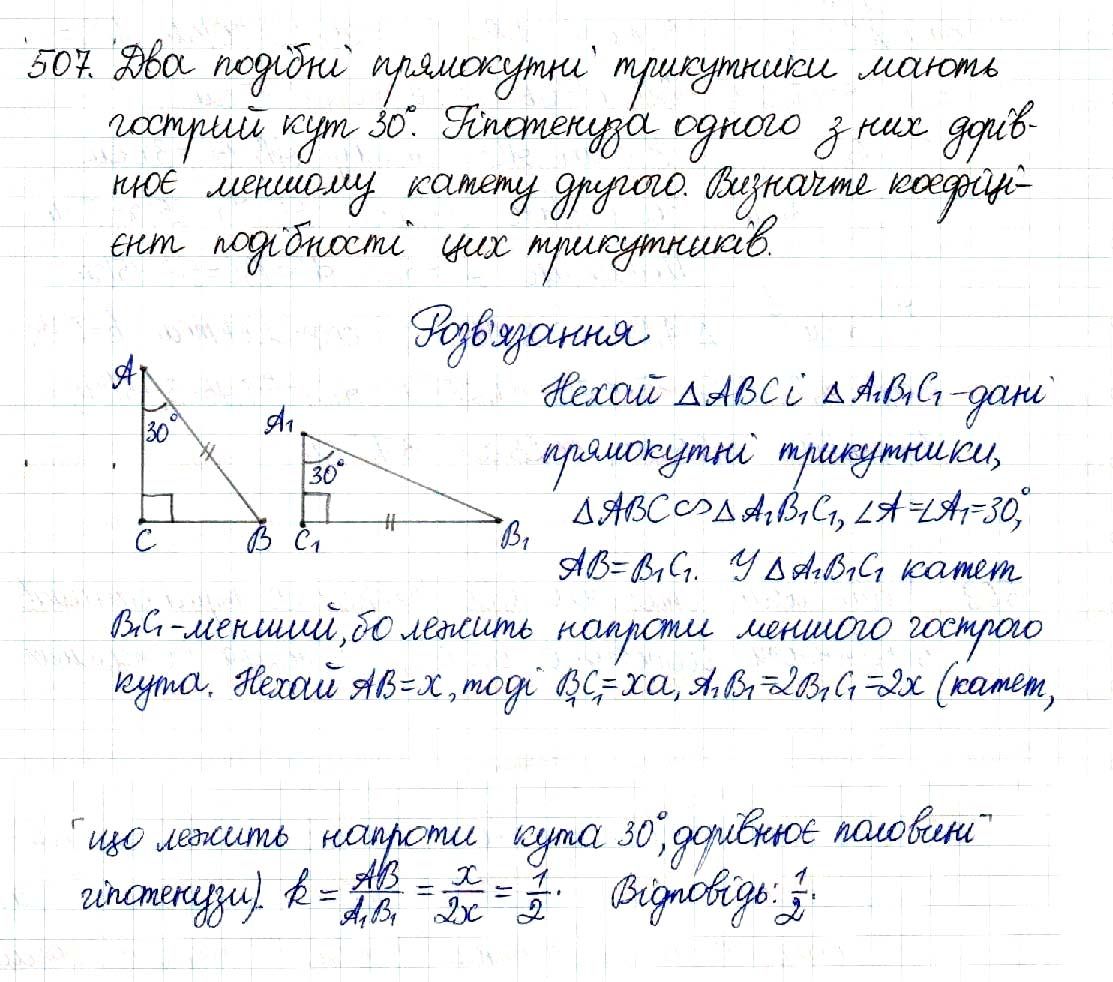 507. Два подібні прямокутні трикутники мають
гострий кут 30°. Гіпотенуза одного з них дорів-
нює меншому катету другого. Визначте коефіці-
єнт подібності цих трикутників.
Розв'язання
A
30°
C
B
A₁
30°
C₁
B₁
Нехай △ABC і △A₁B₁C₁ - дані
прямокутні трикутники,
△ABC ∽ △A₁B₁C₁, ∠A = ∠A₁ = 30°,
AB = B₁C₁. У △A₁B₁C₁ катет
B₁C₁ - менший, бо лежить напроти меншого гострого
кута. Нехай AB = x, тоді B₁C₁ = xa, A₁B₁ = 2B₁C₁ = 2x (катет,
що лежить напроти кута 30°, дорівнює половині
гіпотенузи). k = AB/A₁B₁ = x/2x = 1/2. Відповідь: 1/2.